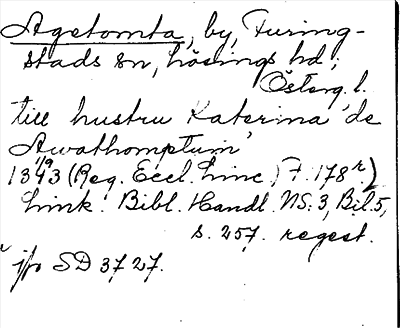 Agetomta, by, Furing-
stads sn, Lösings hd;
Österg. l.
till hustru Katerina 'de
Awathomptum'
19/9 1343 (Reg. Eccl. Linc, F. 178r.)
Link. Bibl. Handl. NS: 3, Bil. 5,
s. 257. regest.
jfr SD 3727.